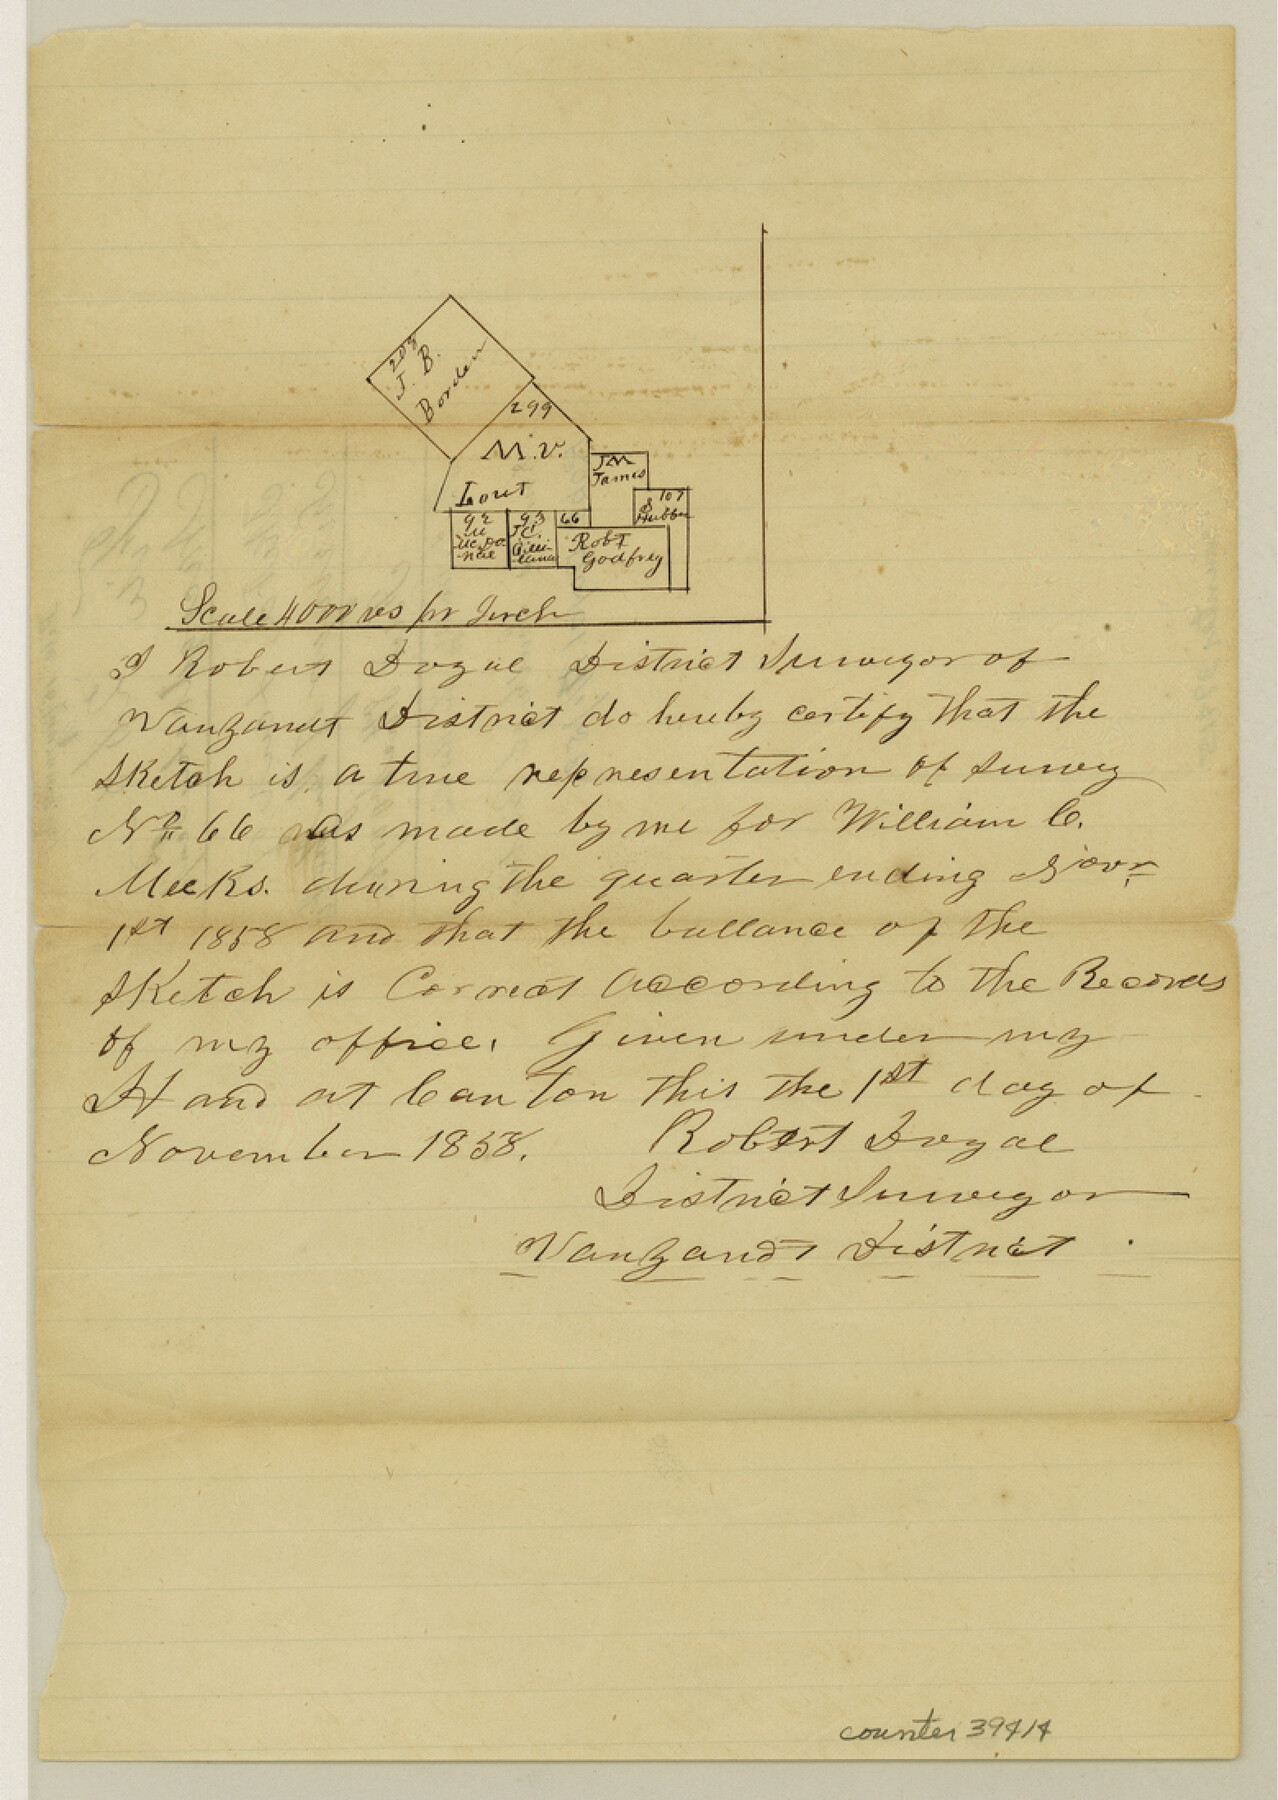 208
J. B.
Borden
299
M. V.
Lout
J M
James
107
S
92
Mc Do
93
J C
Gilli-
66
Robt
Godfrey
Scale 4000 vs pr Inch
I Robert Dozal District Surveyor of
Vanzandt District do hereby certify that the
Sketch is a true representation of Survey
No 66 as made by me for William C.
Meeks. during the quarter ending Novr
1st 1858 and that the ballance of the
Sketch is Correct according to the Records
of my office. Given under my
Hand at Canton this the 1st day of
November 1858. Robert Dozal
District Surveyor
Vanzandt District
counter 39414